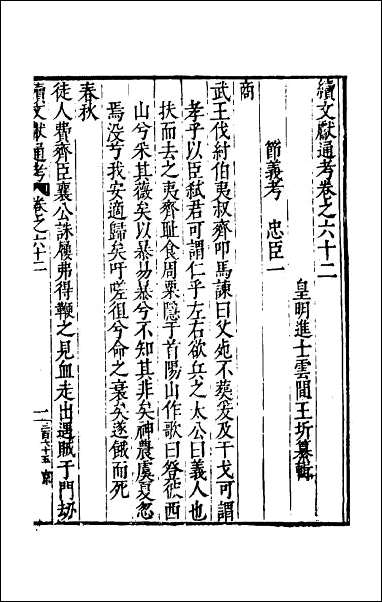 續文獻通考卷之六十二
皇明進士雲間王圻纂輯
節義考 忠臣一
商
武王伐紂伯夷叔齊叩馬諫曰父死不葬爰及干戈可謂
孝乎以臣弑君可謂仁乎左右欲兵之太公曰義人也
扶而去之夷齊耻食周粟隱于首陽山作歌曰登彼西
山兮采其薇矣以暴易暴兮不知其非矣神農虞夏忽
焉没兮我安適歸矣吁嗟徂兮命之衰矣遂餓而死
春秋
徒人費齊臣襄公誅屨弗得鞭之見血走出遇賊于門劫
續文獻通考 卷之六十二 一